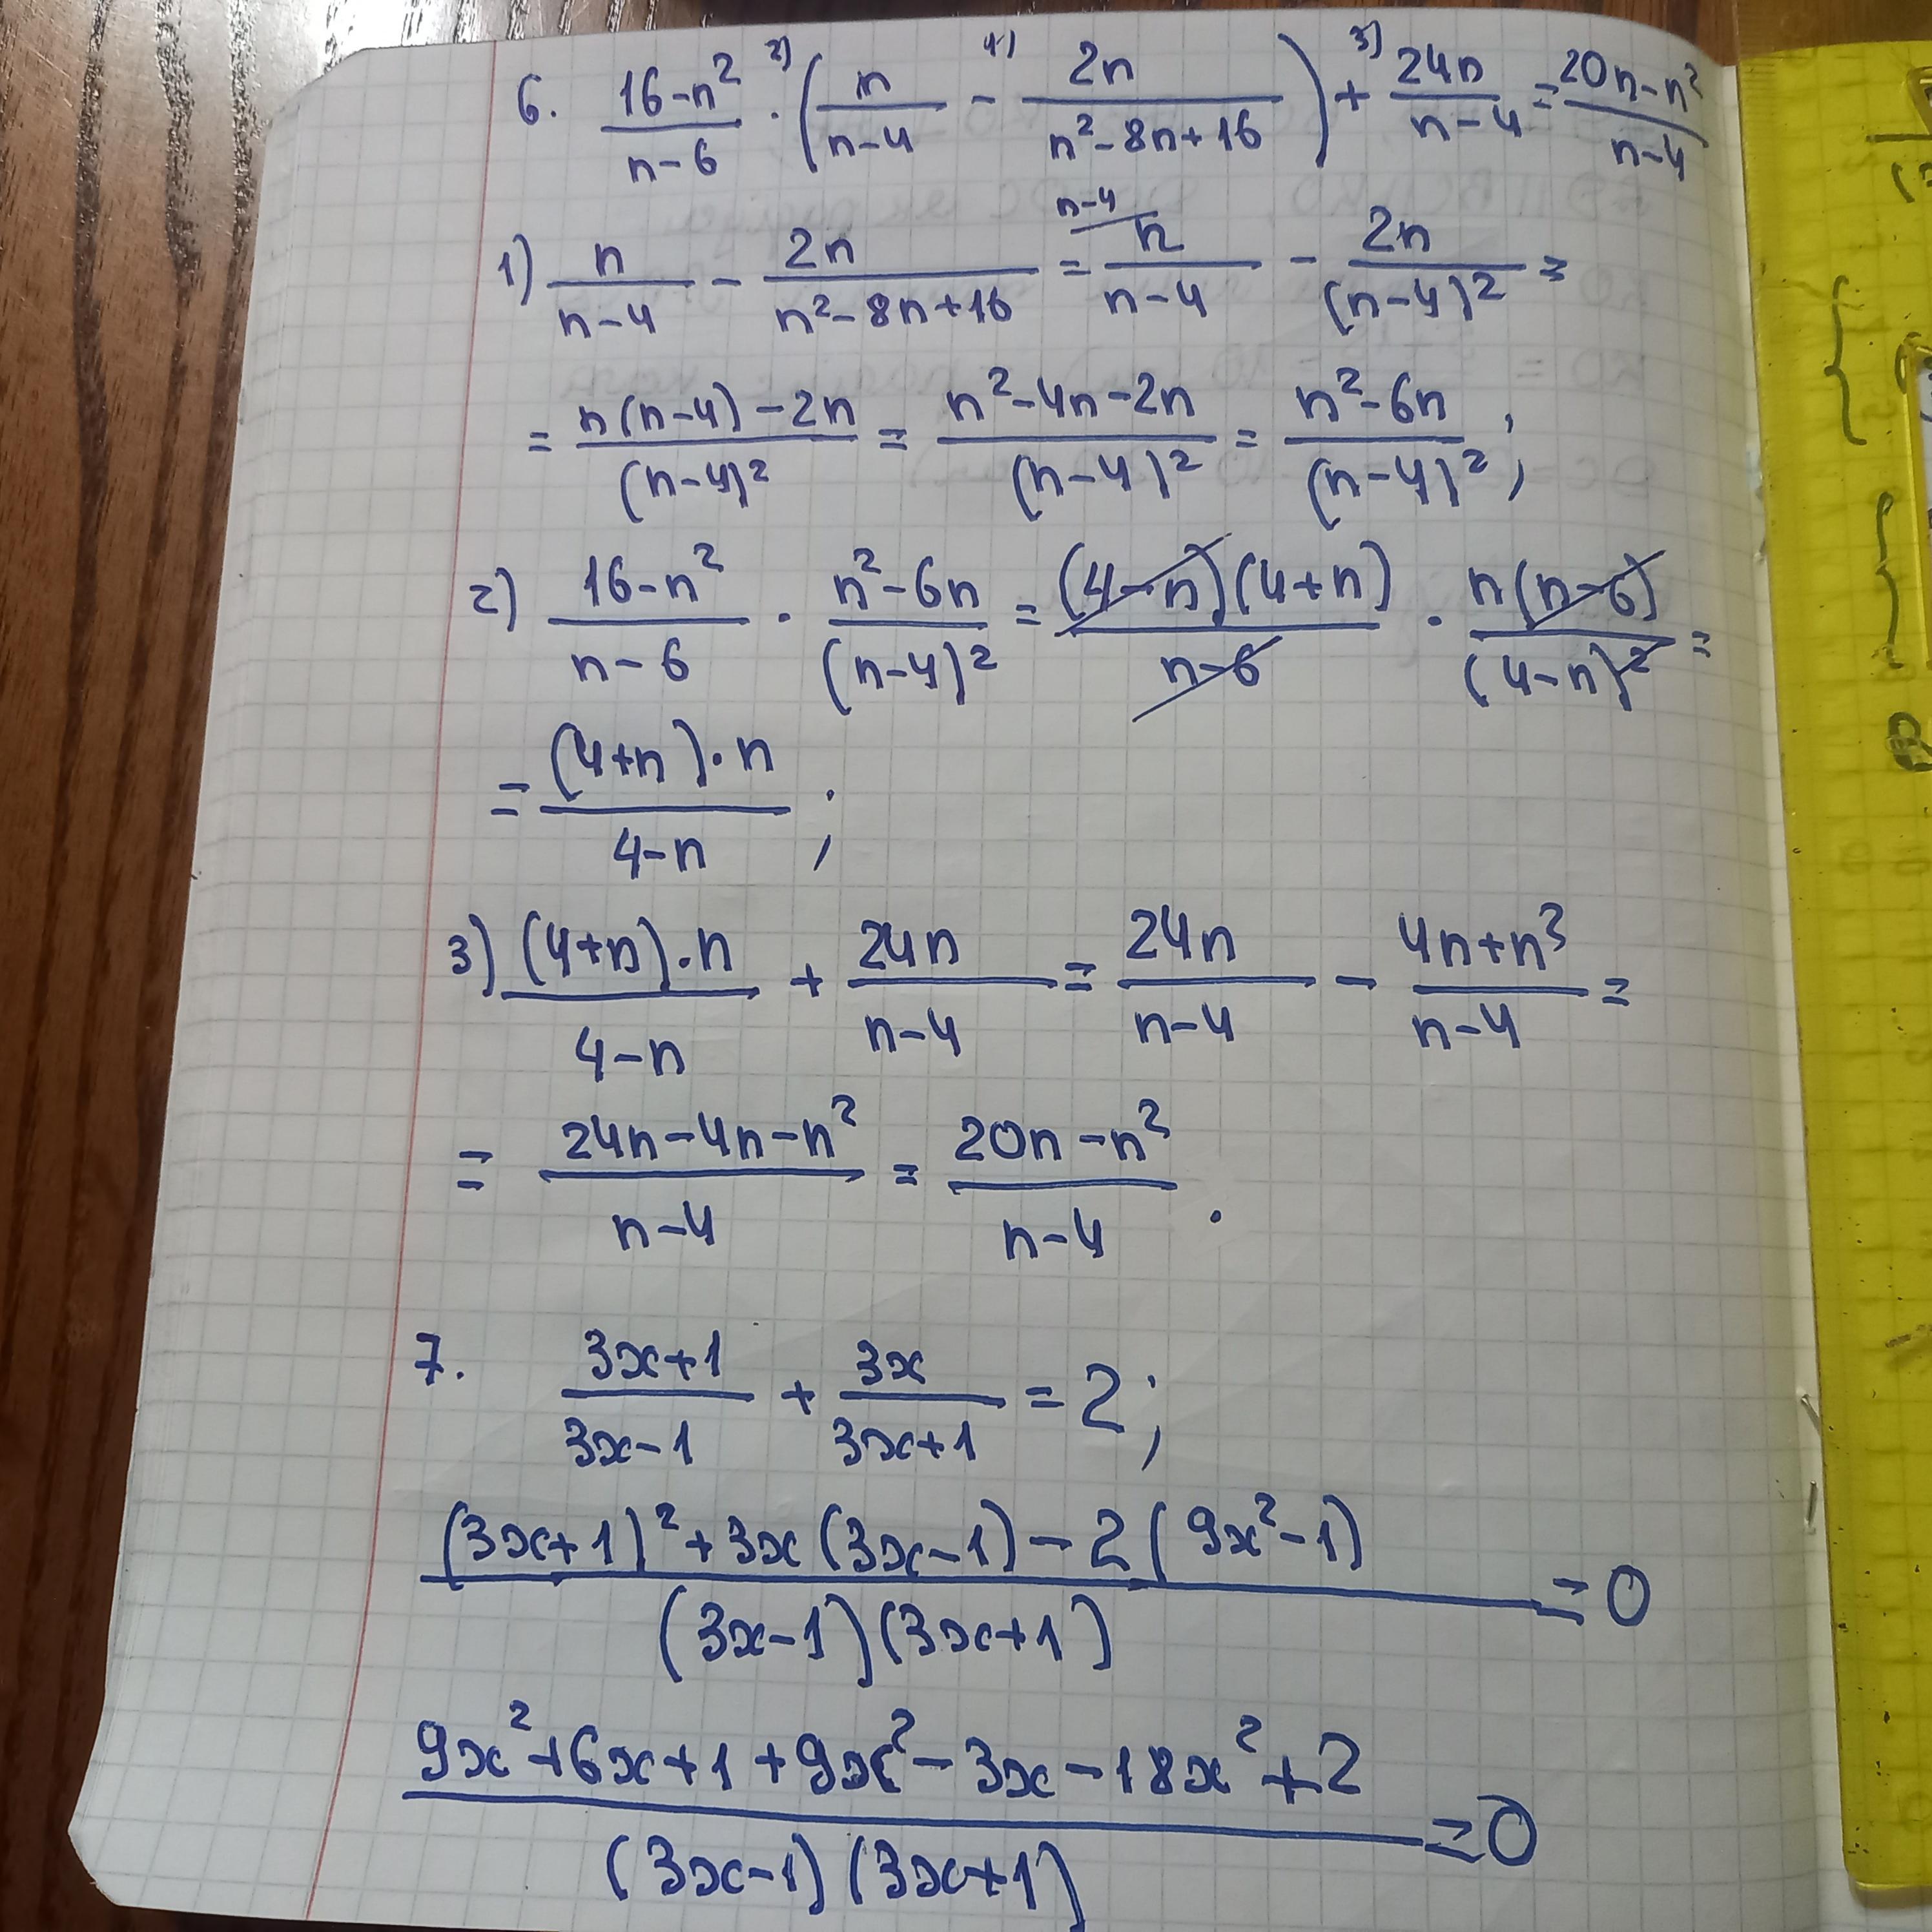 6. \frac{16-n^2}{n-6} \cdot^{2)} \left( \frac{n}{n-4} -^{1)} \frac{2n}{n^2-8n+16} \right) +^{3)} \frac{24n}{n-4} = \frac{20n-n^2}{n-4}
1) \frac{n}{n-4} - \frac{2n}{n^2-8n+16} = \frac{n}{n-4}^{n-4} - \frac{2n}{(n-4)^2} =
= \frac{n(n-4)-2n}{(n-4)^2} = \frac{n^2-4n-2n}{(n-4)^2} = \frac{n^2-6n}{(n-4)^2};
2) \frac{16-n^2}{n-6} \cdot \frac{n^2-6n}{(n-4)^2} = \frac{(4-n)(4+n)}{n-6} \cdot \frac{n(n-6)}{(4-n)^2} =
= \frac{(4+n) \cdot n}{4-n};
3) \frac{(4+n) \cdot n}{4-n} + \frac{24n}{n-4} = \frac{24n}{n-4} - \frac{4n+n^2}{n-4} =
= \frac{24n-4n-n^2}{n-4} = \frac{20n-n^2}{n-4}.
7. \frac{3x+1}{3x-1} + \frac{3x}{3x+1} = 2;
\frac{(3x+1)^2+3x(3x-1)-2(9x^2-1)}{(3x-1)(3x+1)} = 0
\frac{9x^2+6x+1+9x^2-3x-18x^2+2}{(3x-1)(3x+1)} = 0